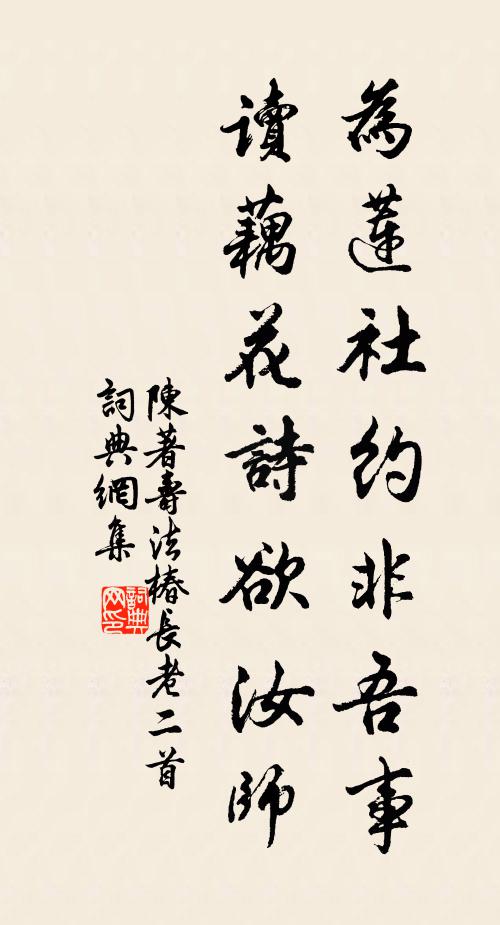 為蓮社約非吾事
讀藕花詩欲汝師
陳著壽法椿長老二首
詞典網集
詞典
网印